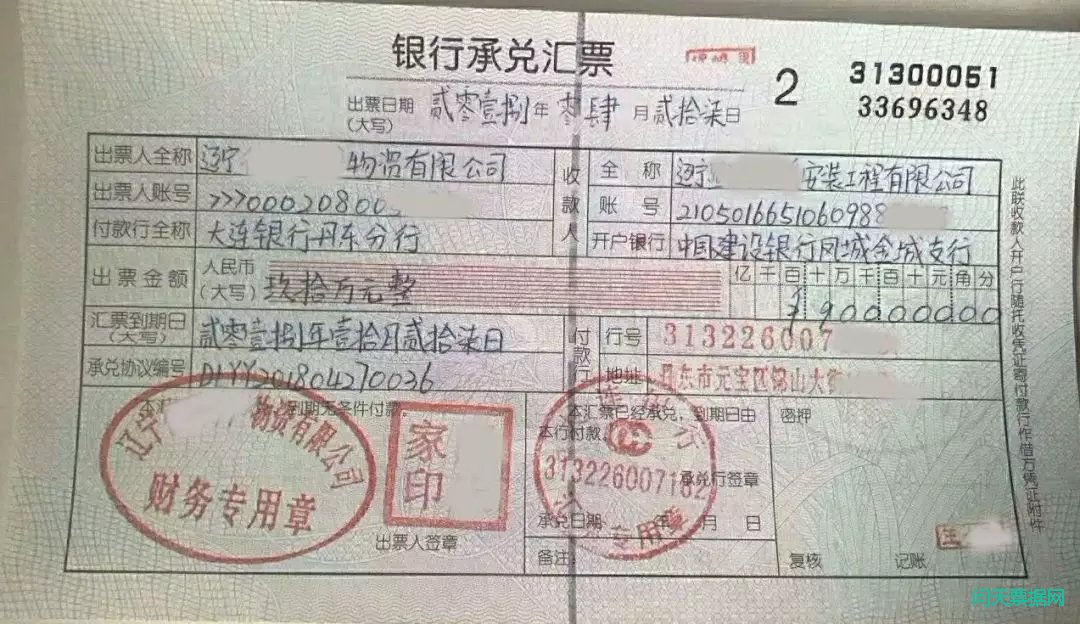 银行承兑汇票
2
31300051
33696348
出票日期
(大写)
贰零壹捌年 零肆 月 贰拾柒日
出票人全称 辽宁 物资有限公司
出票人账号 >>>00020800
付款行全称 大连银行丹东分行
收款人
全 称 辽宁 安装工程有限公司
账 号 2105016651060988
开户银行 中国建设银行凤城金城支行
出票金额 人民币
(大写) 玖拾万元整
亿千百十万千百十元角分
¥90000000
汇票到期日
(大写)
贰零壹捌年壹拾月贰拾柒日
承兑协议编号 DLYY201804270036
付款行
行号 313226007
地址 丹东市元宝区锦山大街
到期无条件付款
辽宁 物资有限公司
财务专用章
家印
出票人签章
本汇票已经承兑,到期日由
本行付款
313226007182
专用章
承兑行签章
承兑日期 年 月 日
备注
密押
复核 记账
此联收款人开户行随托收凭证寄付款行作借方凭证附件
问天票据网